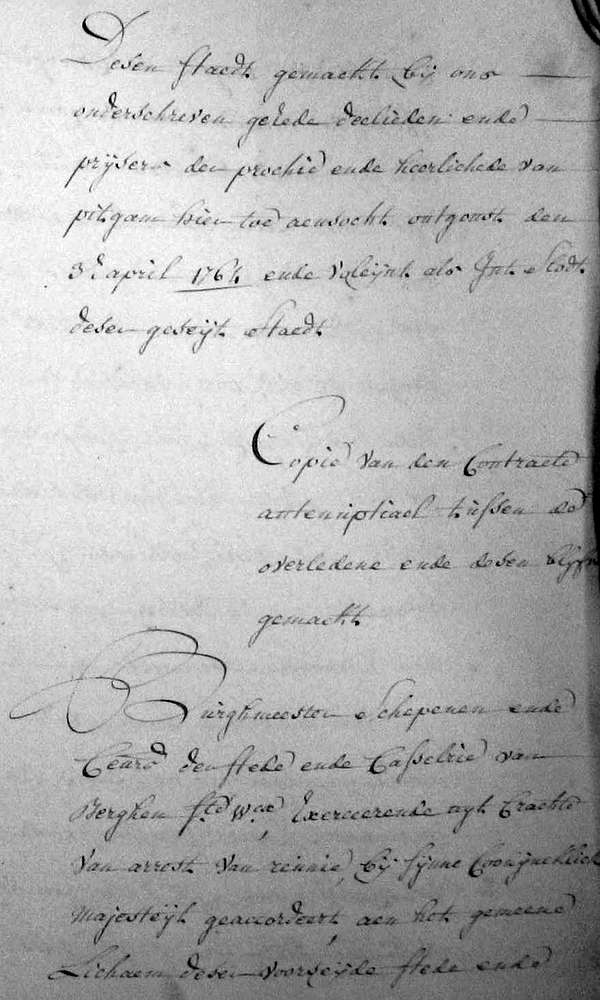 Desen staedt gemackt bij ons
onderschreven gelede deelieden ende
prijsers der prochie ende heerlichede van
pitgam hier toe aensocht ontgonst den
3e april 1764 ende valeijnt als Int slodt
deser geseijt staedt
Copie van den Contracte
antenuptiael tussen de
overledene ende desen
gemackt
Burghmeester Schepenen ende
Ceure der stede ende Casselrie van
Berghen Ste Wcx, Exercerende uyt Crachte
van arrest van rennie, bij sijnne Coonijncklick
Majesteijt geaccordeert, aen het gemeene
Lichaem deser voorseijde stede ende